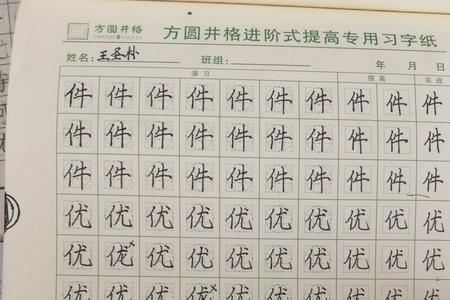 方圆井格 方圆井格进阶式提高专用习字纸
姓名：王圣朴 班组： 年 月 日
演习 提高 实战
件件件件件件件件件件
件件件件件件件件件件
件件件件件件件件件件
优优优优优优优优优优
优优优优优优优优优优
优优优优优优优优优优